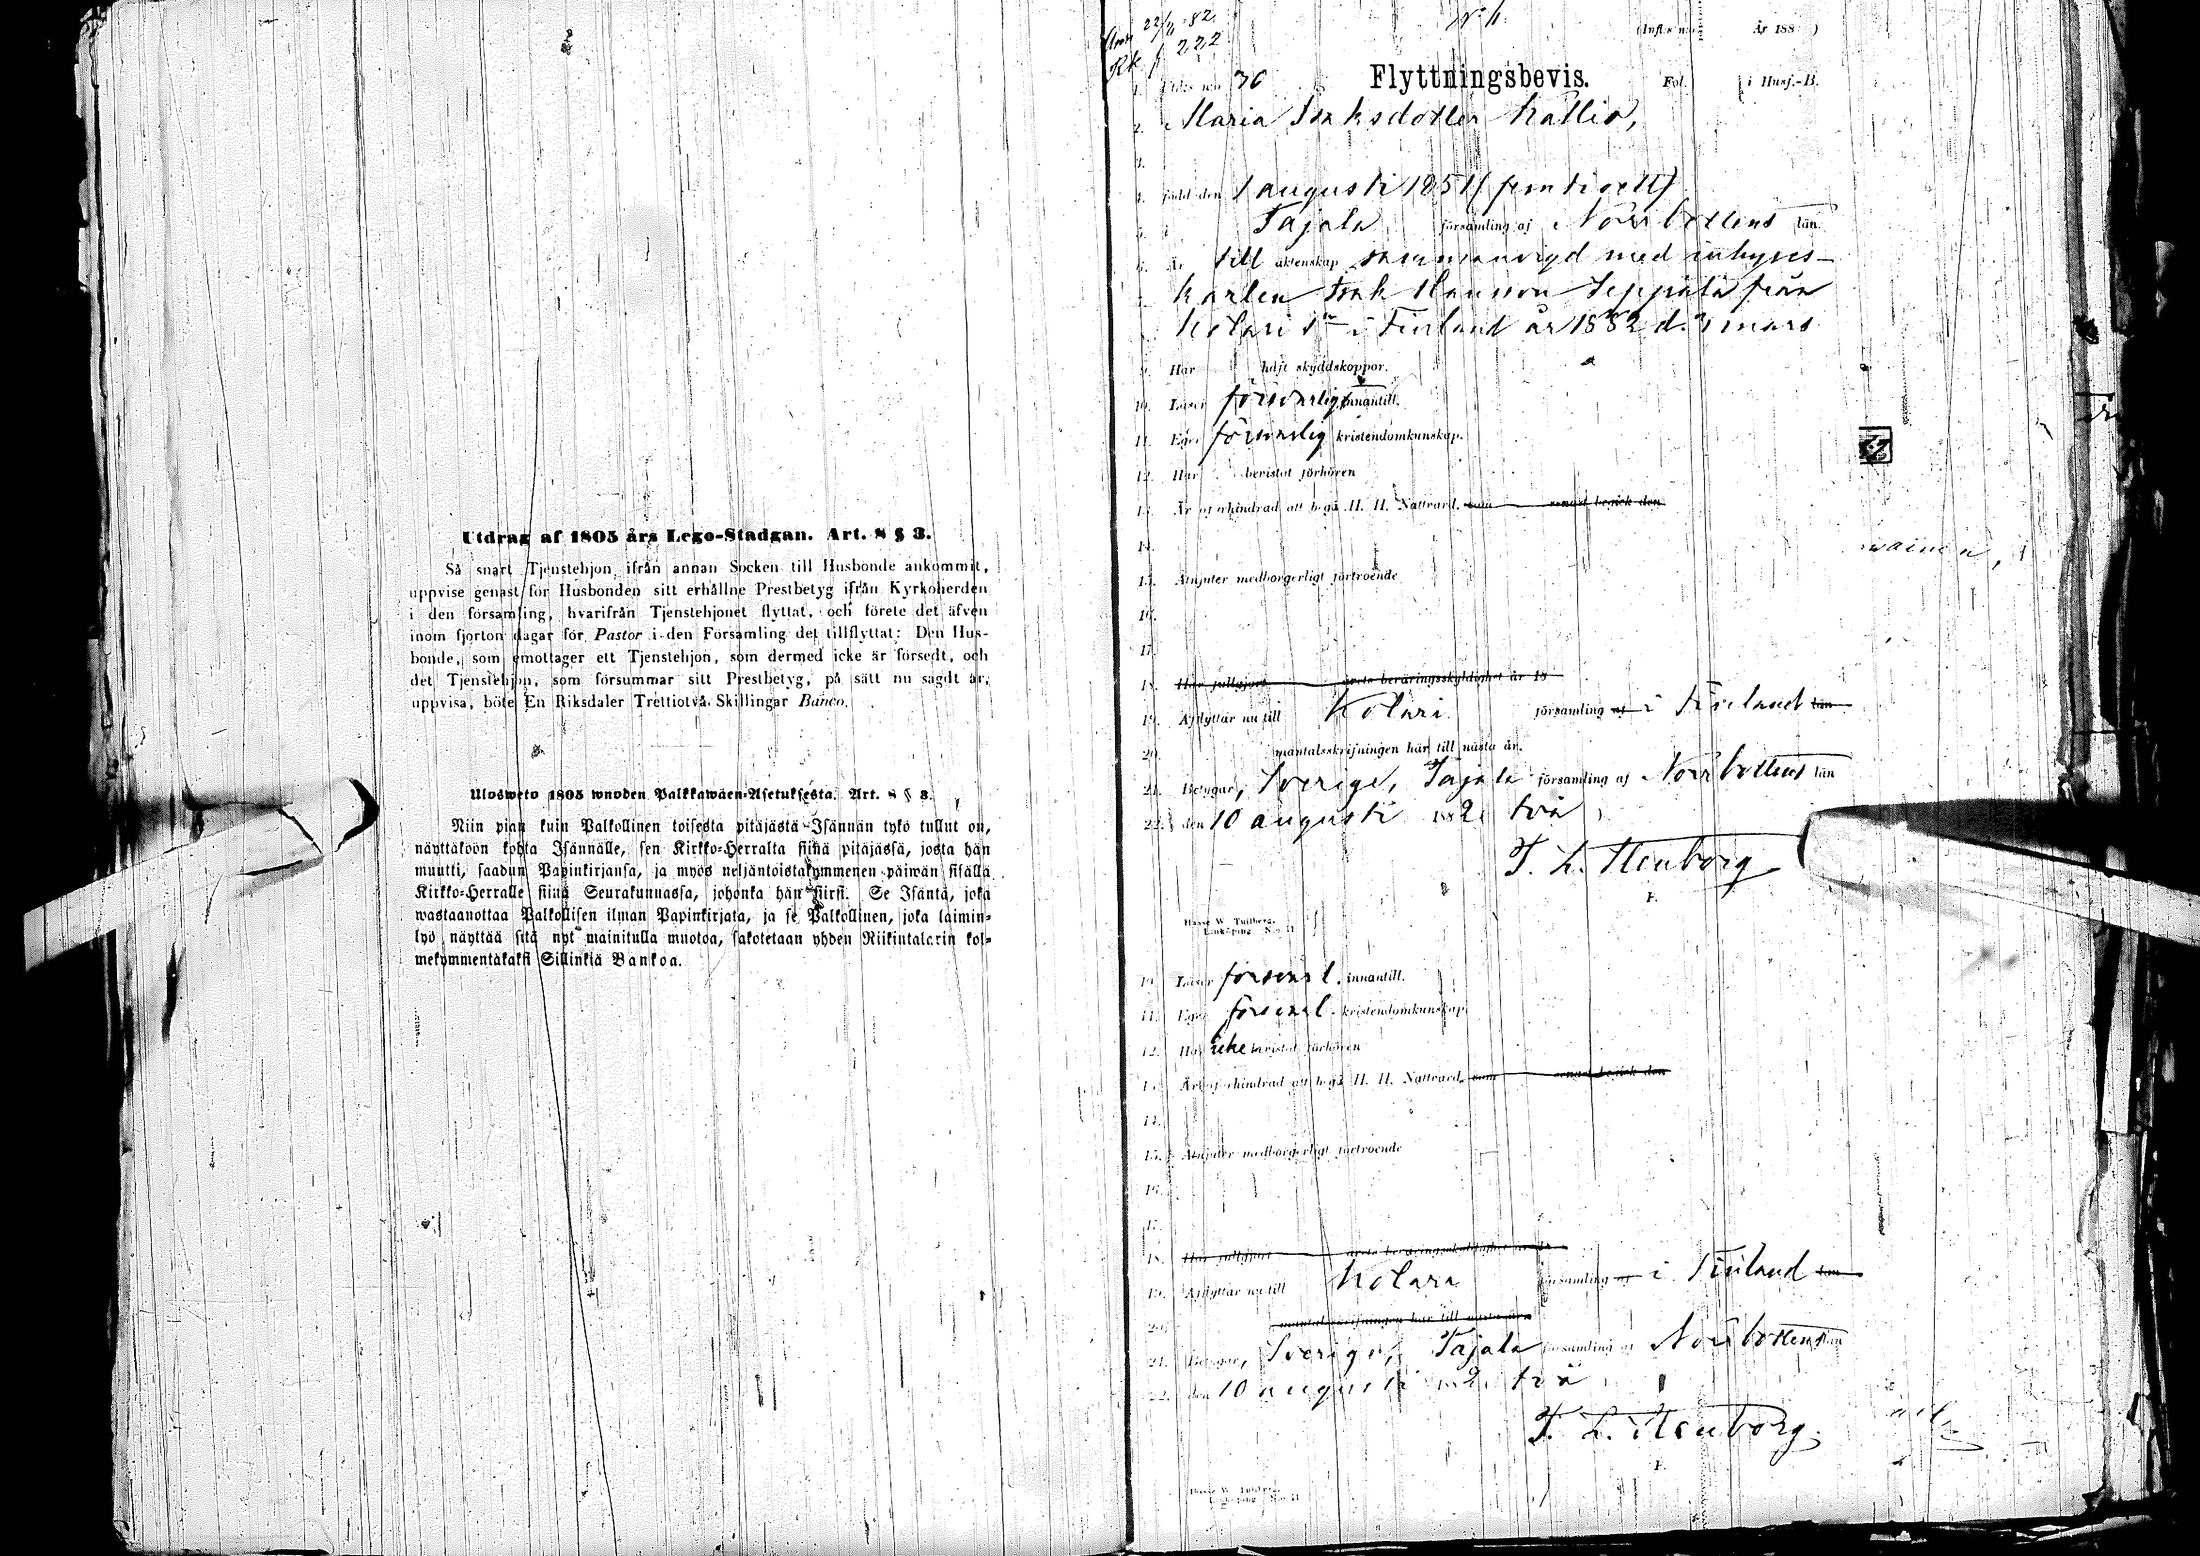 Utdrag af 1805 års Lego-Stadgan. Art. 8 § 3.
Så snart Tjenstehjon ifrån annan Socken till Husbonde ankommit,
uppvise genast för Husbonden sitt erhållne Prestbetyg ifrån Kyrkoherden
i den församling, hvarifrån Tjenstehjonet flyttat, och förete det äfven
inom fjorton dagar för Pastor i den Församling det tillflyttat: Den Hus-
bonde, som emottager ett Tjenstehjon, som dermed icke är försedt, och
det Tjenstehjon, som försummar sitt Prestbetyg, på sätt nu sagdt är,
uppvisa, böte En Riksdaler Trettiotvå Skillingar Banco.
Ulosweto 1805 wuoden Palkkawäen-Asetuksesta. Art. 8 § 3.
Niin pian kuin Palkollinen toisesta pitäjästä Isännän tykö tullut on,
näyttäköön kohta Isännälle, sen Kirkko-Herralta siinä pitäjässä, josta hän
muutti, saadun Papinkirjansa, ja myös neljäntoistakymmenen päiwän sisällä
Kirkko-Herralle siinä Seurakunnassa, johonka hän siirsi. Se Isäntä, joka
wastaanottaa Palkollisen ilman Papinkirjata, ja se Palkollinen, joka laimin-
lyö näyttää sitä nyt mainitulla muotoa, sakotetaan yhden Riikintalarin kol-
mekymmentäkaksi Sillinkiä Bankoa.
22/11 82.
Rk p 222
År 188 )
30 Flyttningsbevis. Fol. i Husf.-B.
2. Maria Isaksdotter Kallio,
3.
4. född den 1 augusti 1851 (femtioett)
5. Tajala församling af Norrbottens län.
6. Är till äktenskap sammanvigd med inhyses-
karlen Isak Hansson Seppälä från
Kolari sn i Finland år 1882 d. 3 mars
9. Har haft skyddskoppor.
10. Läser försvarligt innantill.
11. Eger försvarlig kristendomkunskap.
12. Har bevistat förhören
13. Är oförhindrad att begå H. H. Nattvard, som senast begick den
14.
wainen,
15. Åtnjuter medborgerligt förtroende
16.
17.
18. Har fullgjort årets beväringsskyldighet år 18
19. Afflyttar nu till Kolari församling af i Finland län
20. mantalsskrifningen här till nästa år.
21. Betygar, Sverige, Tajala församling af Norrbottens län
22. den 10 augusti 1882 två
F. L. Stenborg
P.
Linköping
10. Läser försvarl. innantill.
11. Eger försvarl. kristendomkunskap.
12. Har icke bevistat förhören
13. Är oförhindrad att begå H. H. Nattvard, som senast begick den
14.
15. Åtnjuter medborgerligt förtroende
16.
17.
18. Har fullgjort årets beväringsskyldighet
19. Afflyttar nu till Kolari församling af i Finland län
20. mantalsskrifningen här till nästa år
21. Betygar, Sverige, Tajala församling af Norrbottens län
22. den 10 augusti 1882 två
F. L. Stenborg.
P.